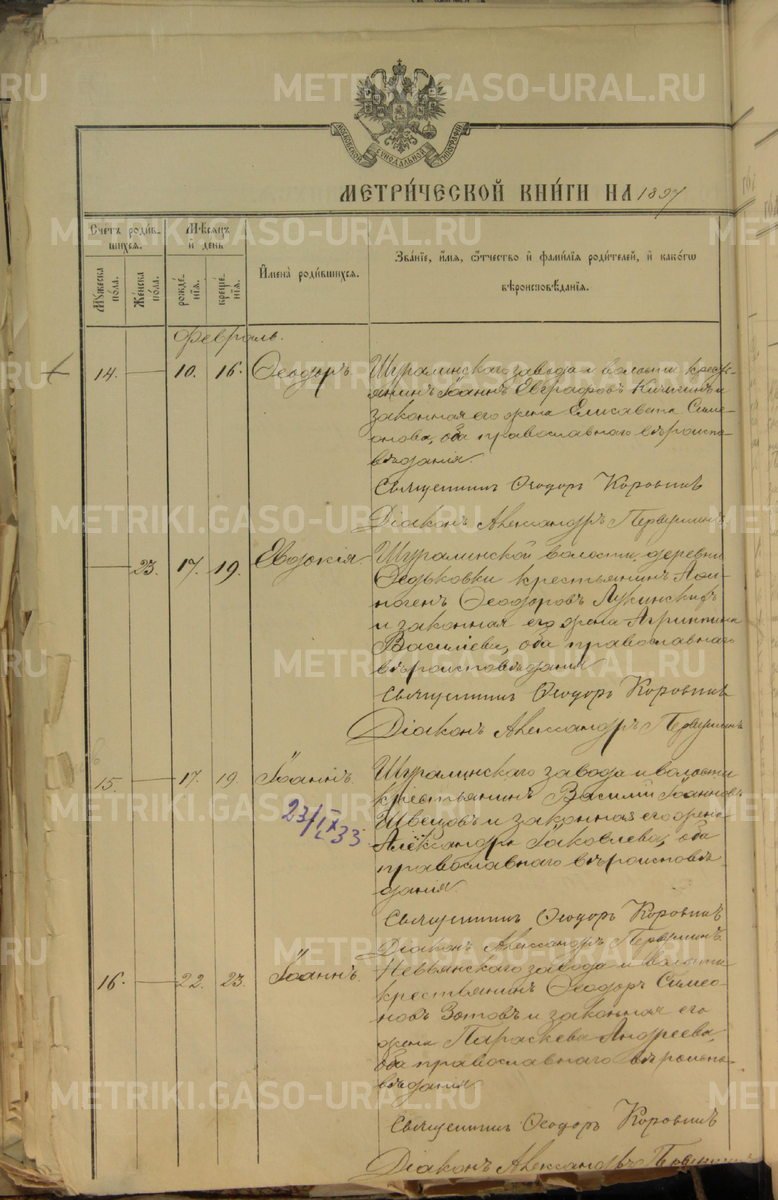 МОСКОВСКОЙ СѴНОДАЛЬНОЙ ТИПОГРАФІИ
МЕТРИ́ЧЕСКОЙ КНИ́ГИ НА 1897
Счетъ роди́в-
шихся.
Мѣсяцъ
и҆ день
Мꙋ́жеска
по́ла.
Же́нска
по́ла.
рожде́-
нїѧ.
креще́-
нїѧ.
И҆мена̀ роди́вшихся.
Зва́нїе, и҆́мѧ, ѻ҆́тчество и҆ фами́лїѧ роди́телей, и҆ како́гѡ
вѣроисповѣ́данїѧ.
Февраль.
14. 10. 16. Ѳеодоръ
Шуралинскаго завода и волости кресть-
янинъ Іоаннъ Евграфовъ Кичигинъ и
законная его жена Елисавета Симе-
онова, оба православнаго вѣроиспо-
вѣданія.
Священникъ Ѳеодоръ Коровинъ
Діаконъ Александръ Первушинъ
23. 17. 19. Евдокія
Шуралинской волости, деревни
Ѳедьковки крестьянинъ Аѳи-
ногенъ Ѳеодоровъ Лукинскихъ
и законная его жена Агриппина
Василіева, оба православнаго
вѣроисповѣданія
Священникъ Ѳеодоръ Коровинъ
Діаконъ Александръ Первушинъ
15. 17. 19 Іоаннъ.
23/IX 33
Шуралинскаго завода и волости
крестьянинъ Василій Іоанновъ
Швецовъ и законная его жена
Александра Іаковлева, оба
православнаго вѣроисповѣ-
данія.
Священникъ Ѳеодоръ Коровинъ
Діаконъ Александръ Первушинъ
16. 22. 23. Іоаннъ.
Невьянскаго завода и волости
крестьянинъ Ѳеодоръ Симео-
новъ Зотовъ и законная его
жена Параскева Андреева,
оба православнаго вѣроиспо-
вѣданія
Священникъ Ѳеодоръ Коровинъ
Діаконъ Александръ Первушинъ
METRIKI.GASO-URAL.RU